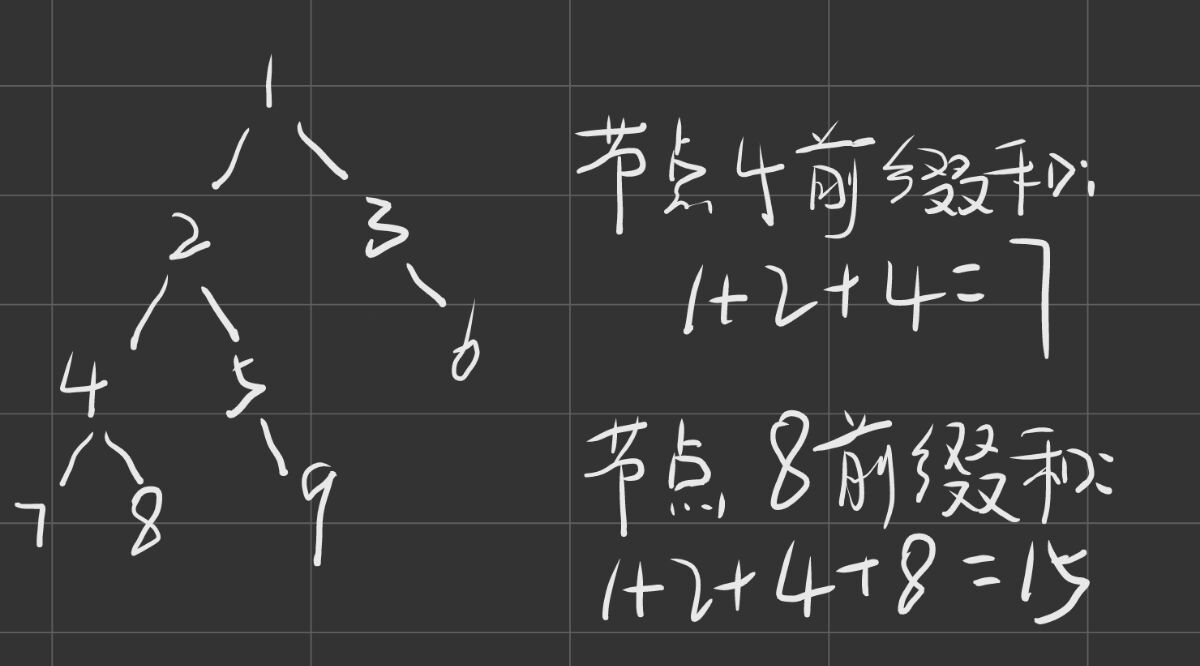 1
2 3
4 5 6
7 8 9
节点4前缀和:
1+2+4=7
节点8前缀和:
1+2+4+8=15